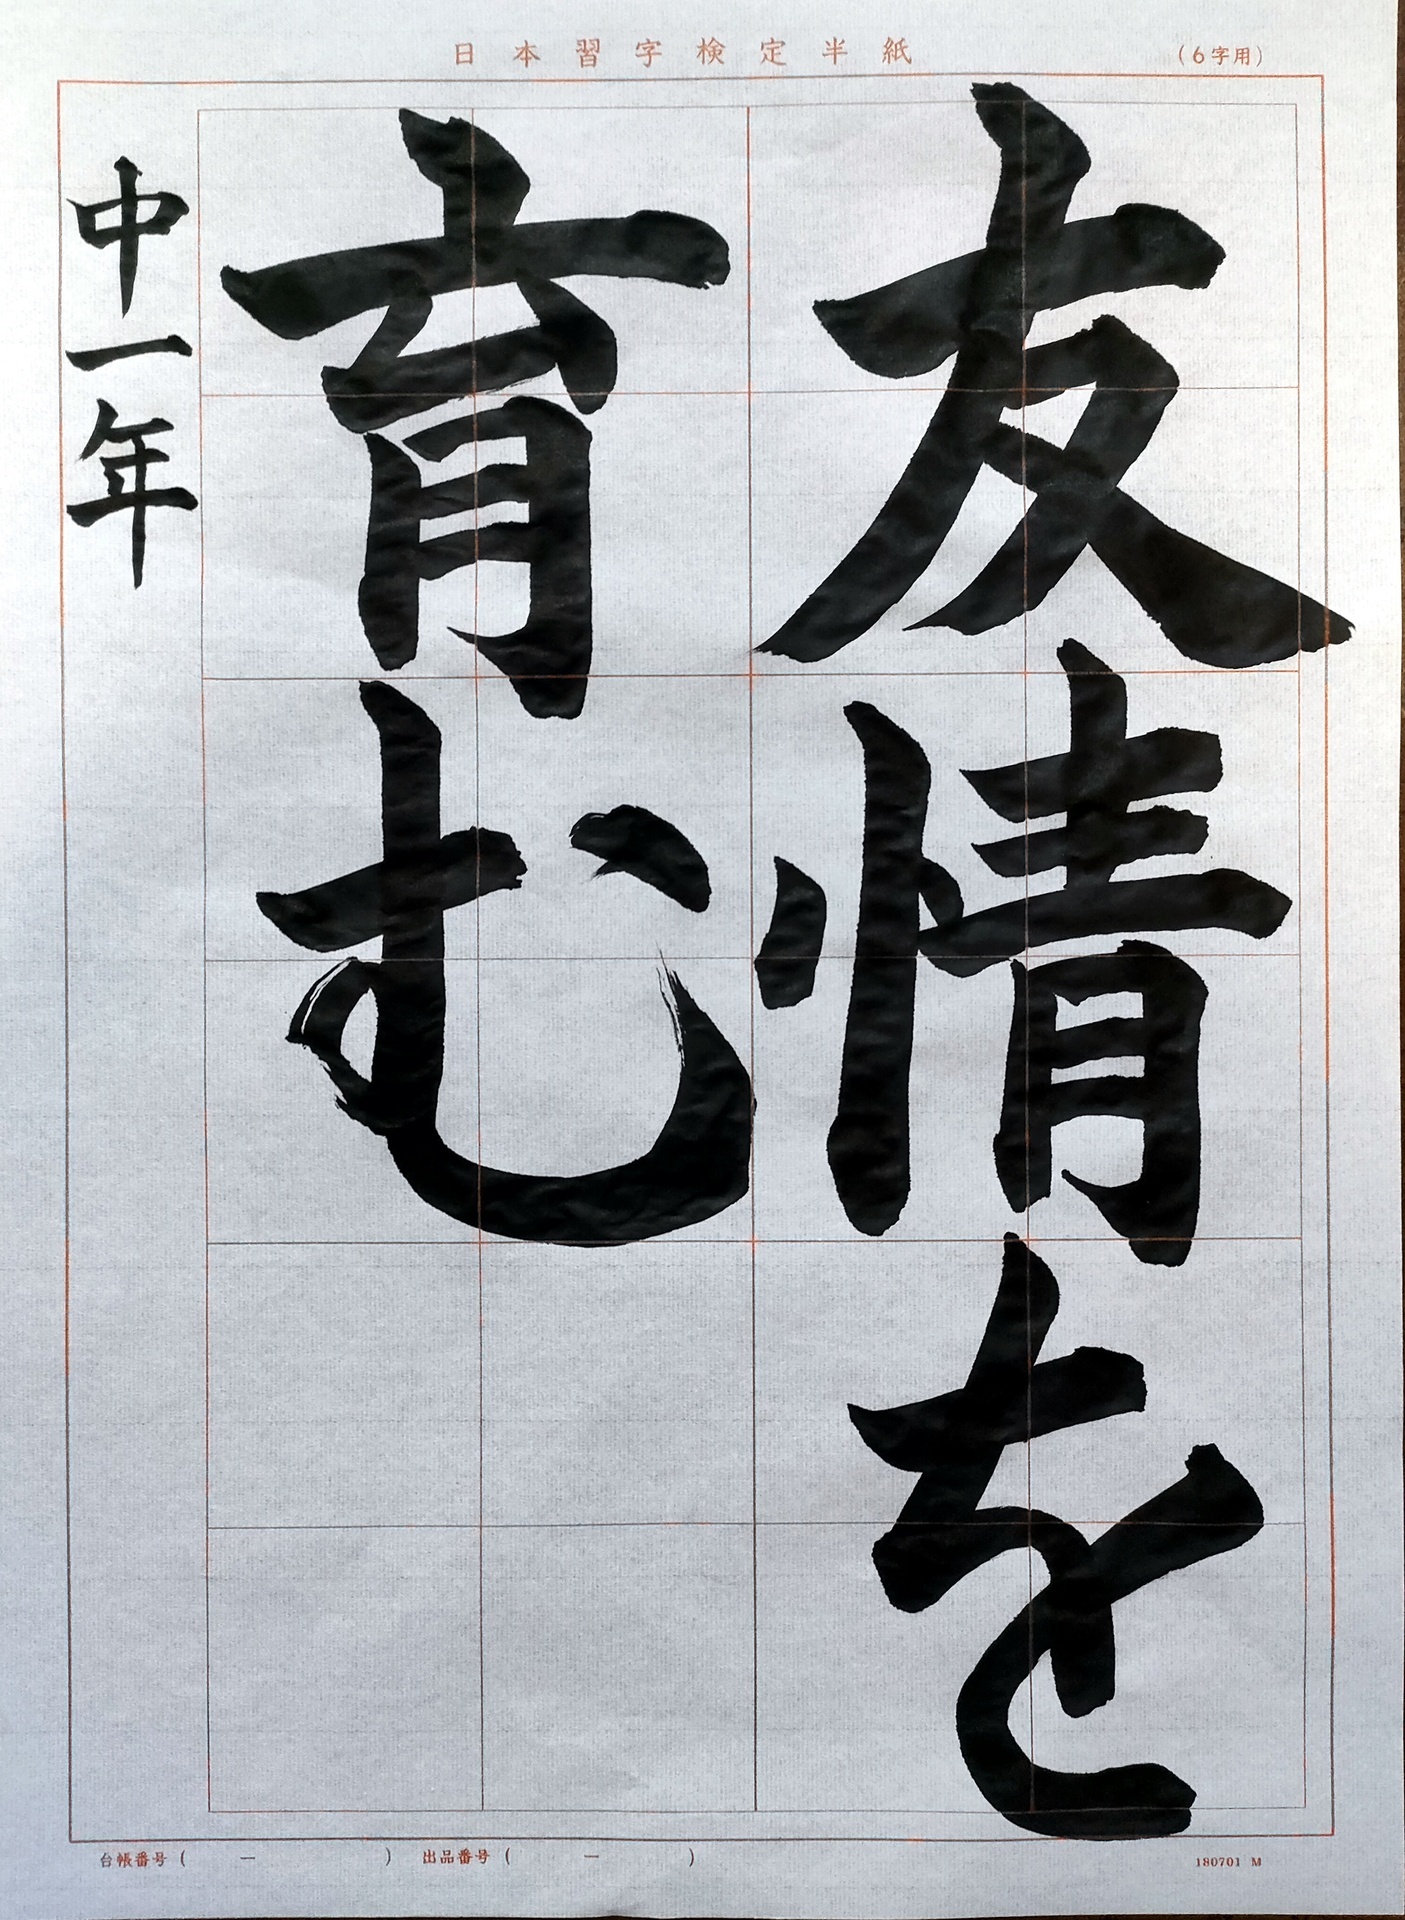 日本習字検定半紙
(6字用)
友情を
育む
中一年
台帳番号( － ) 出品番号( － )
180701 M